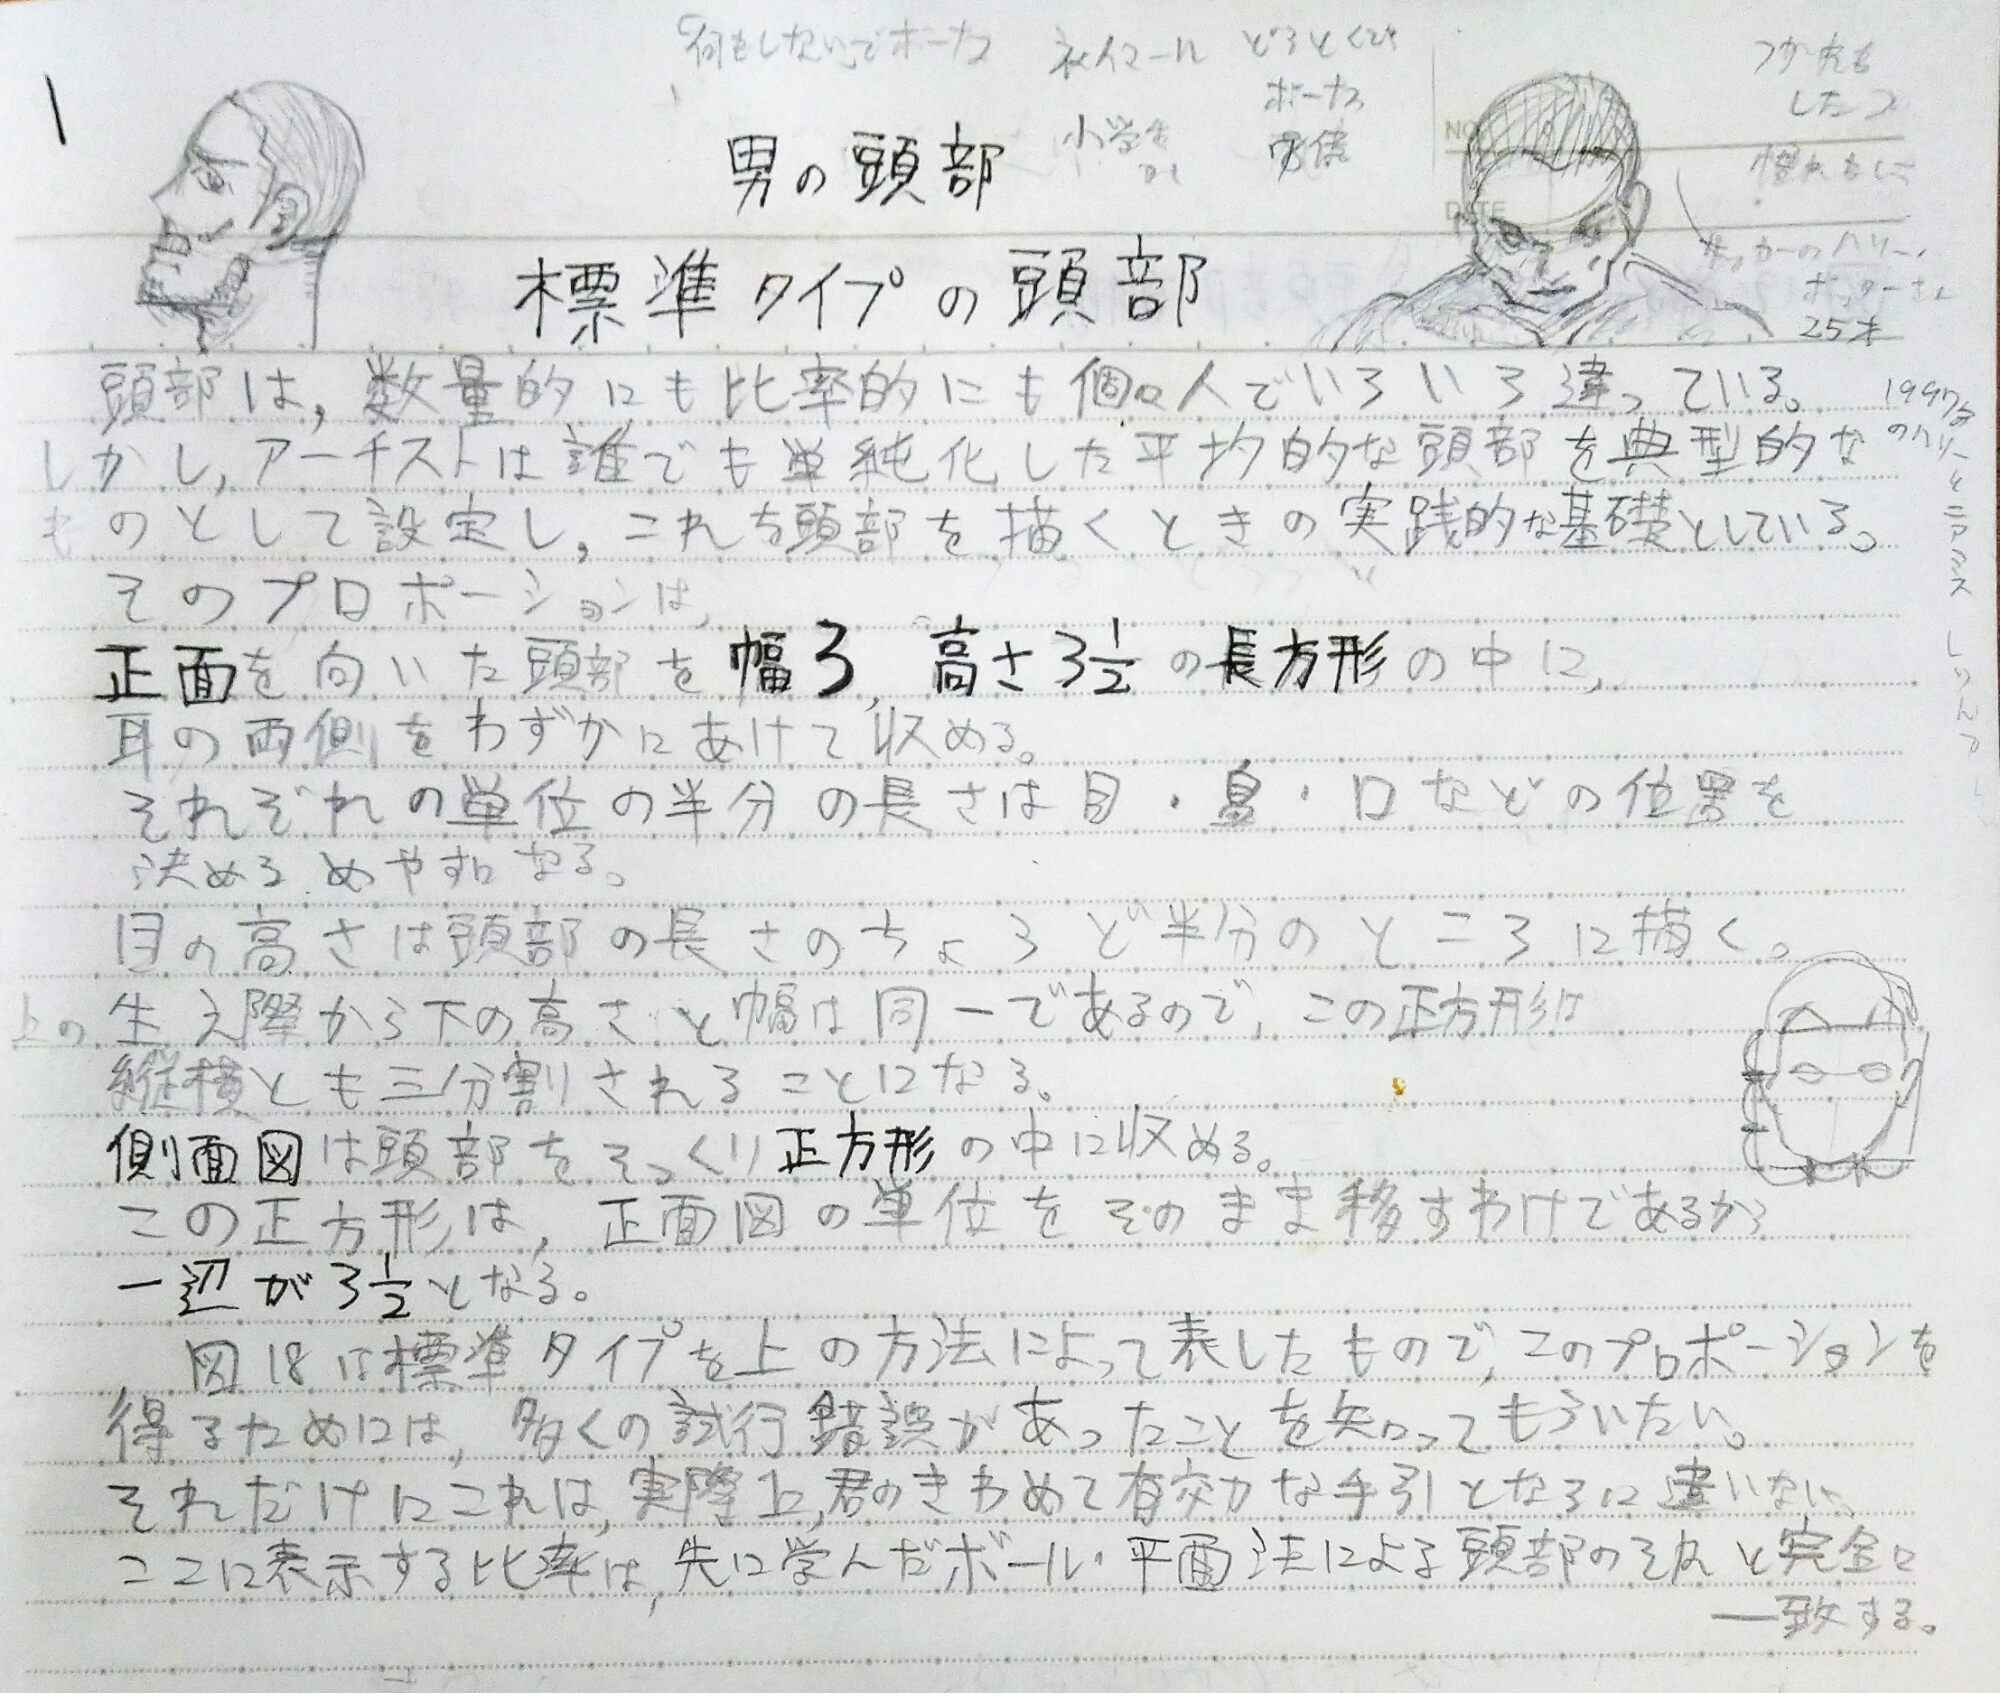 何もしないでボーナス
ボーナス
小学生
NO
DATE
1
男の頭部
標準タイプの頭部
サッカーのハリー・
ポッターさん
25才
頭部は,数量的にも比率的にも個々人でいろいろ違っている。
しかし,アーチストは誰でも単純化した平均的な頭部を典型的な
ものとして設定し,これを頭部を描くときの実践的な基礎としている。
そのプロポーションは,
正面を向いた頭部を幅3,高さ3 1/2の長方形の中に,
耳の両側をわずかにあけて収める。
それぞれの単位の半分の長さは目・鼻・口などの位置を
決めるめやすになる。
目の高さは頭部の長さのちょうど半分のところに描く。
上の生え際から下の高さと幅は同一であるので,この正方形は
縦横とも三分割されることになる。
側面図は頭部をそっくり正方形の中に収める。
この正方形は,正面図の単位をそのまま移すわけであるから
一辺が3 1/2となる。
図18は標準タイプを上の方法によって表したもので,このプロポーションを
得るためには,多くの試行錯誤があったことを知ってもらいたい。
それだけにこれは,実際上,君のきわめて有効な手引となるに違いない。
ここに表示する比率は,先に学んだボール・平面法による頭部のそれと完全に
一致する。